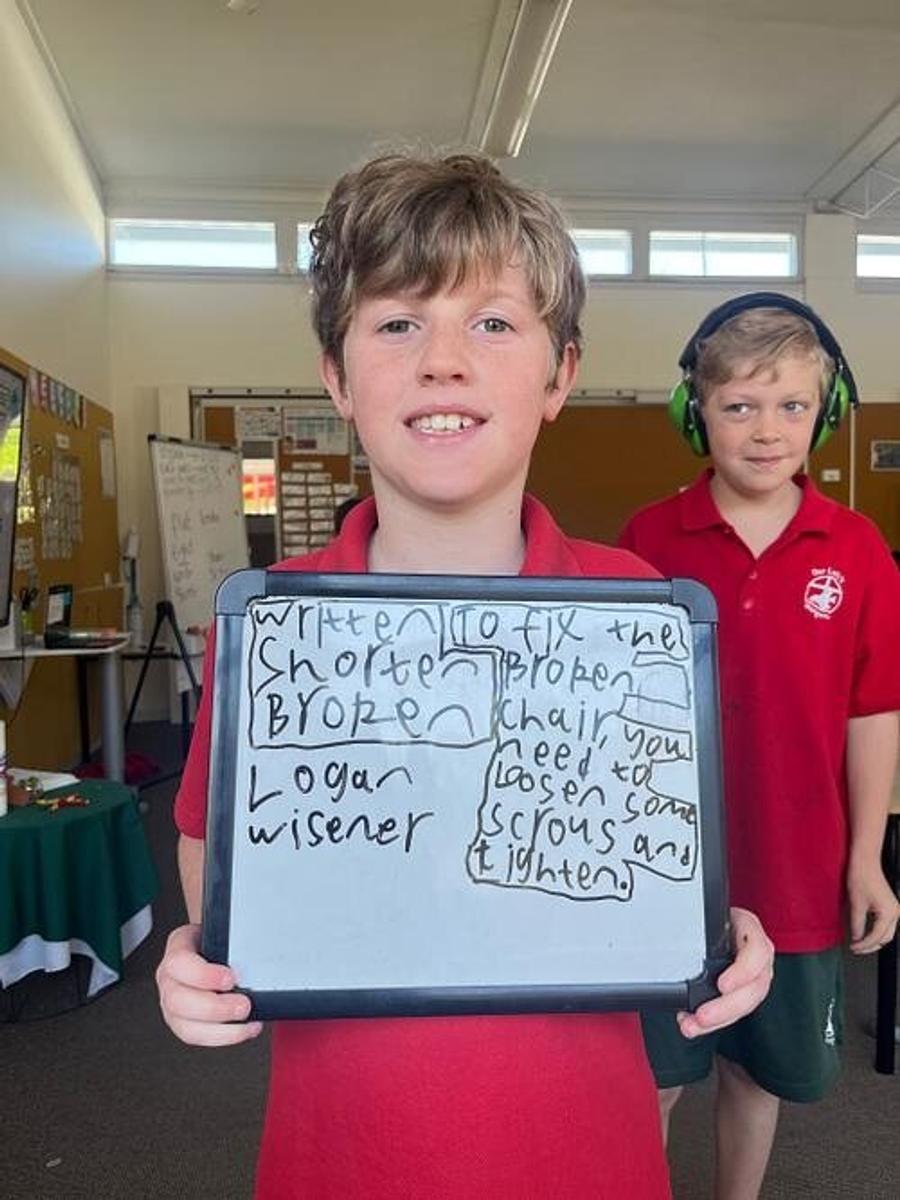 written
Shorten
Broken
Logan
wisener
To fix the
Broken
chair, you
need to
Loosen some
scrous and
tighten.